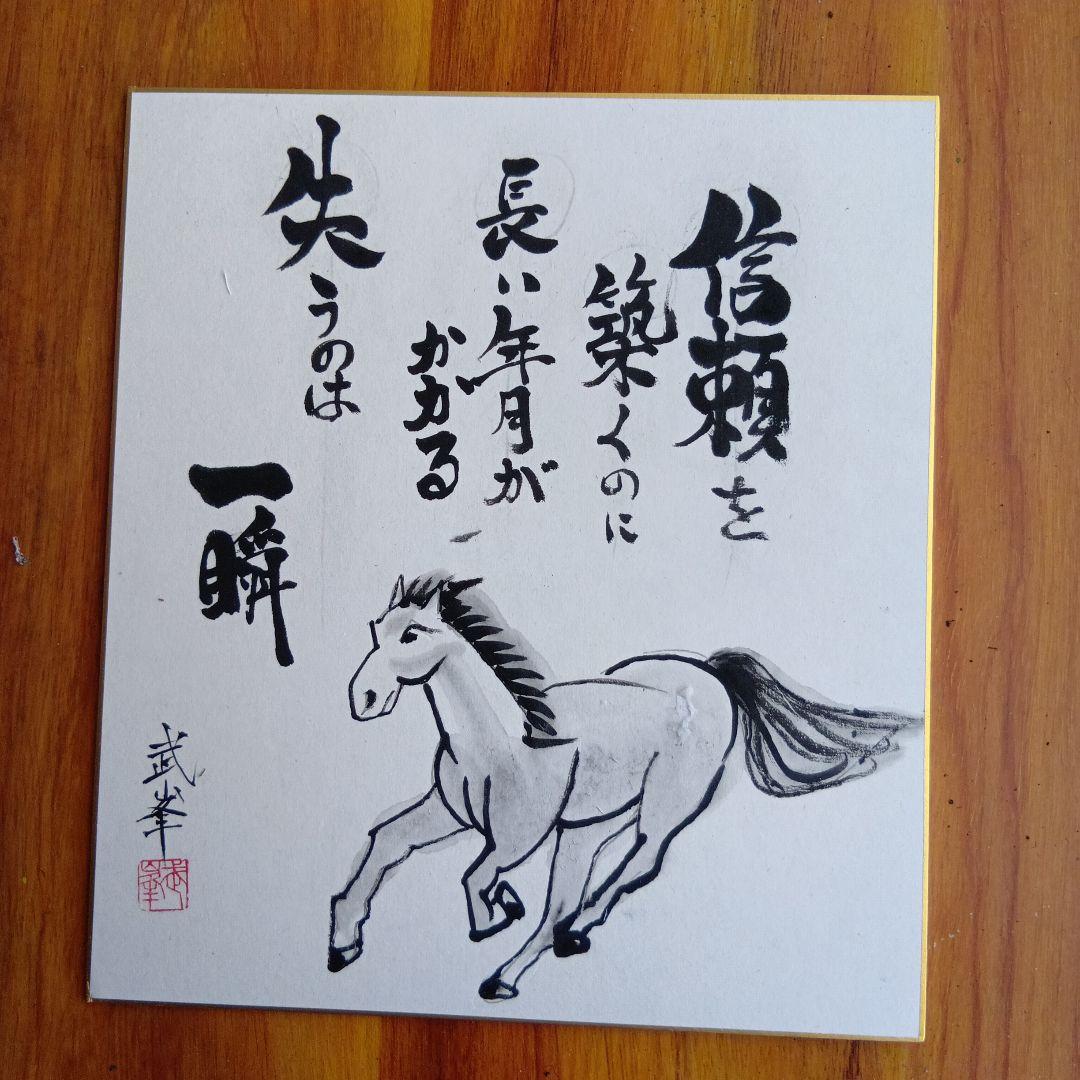 信頼を
築くのに
長い年月が
かかる
失うのは
一瞬
武峯
武峯